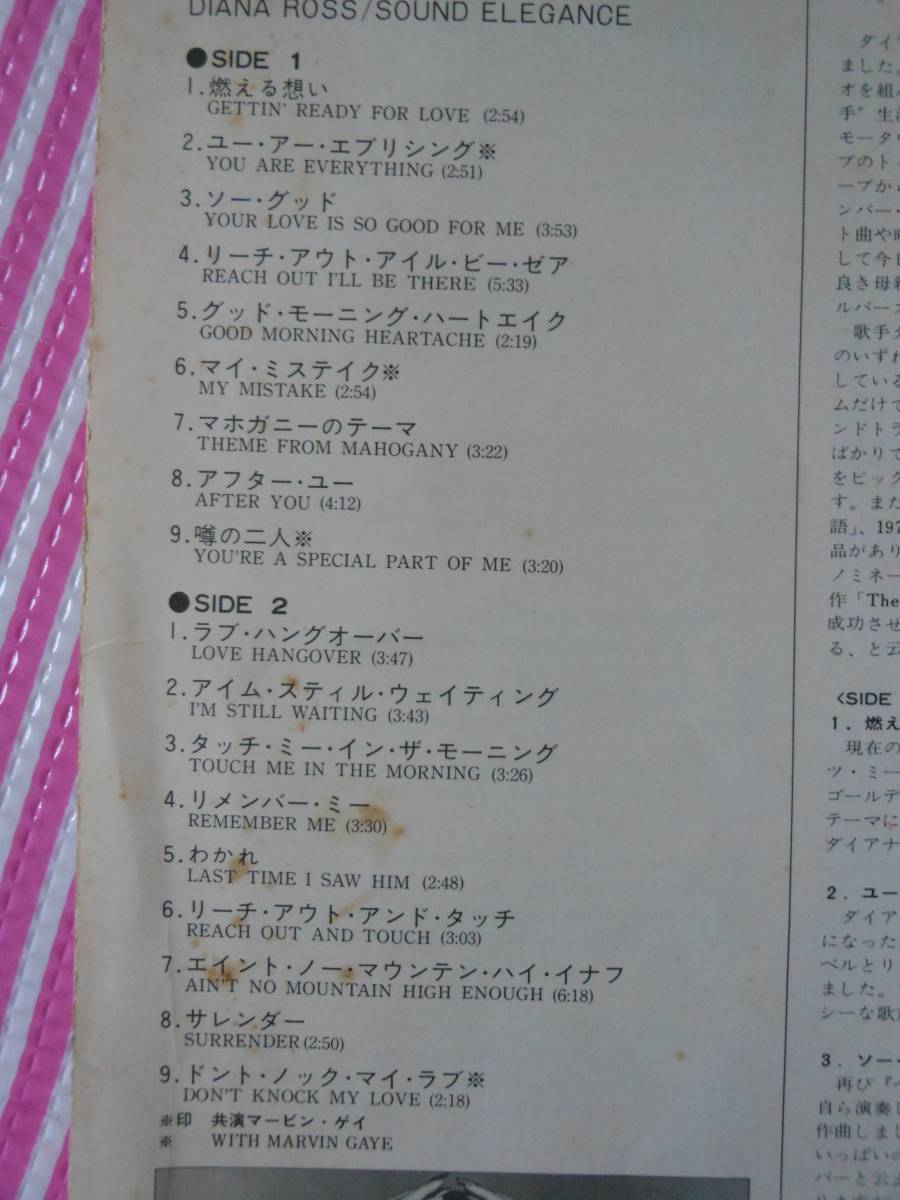 DIANA ROSS/SOUND ELEGANCE
●SIDE 1
1.燃える想い
GETTIN' READY FOR LOVE (2:54)
2.ユー・アー・エブリシング※
YOU ARE EVERYTHING (2:51)
3.ソー・グッド
YOUR LOVE IS SO GOOD FOR ME (3:53)
4.リーチ・アウト・アイル・ビー・ゼア
REACH OUT I'LL BE THERE (5:33)
5.グッド・モーニング・ハートエイク
GOOD MORNING HEARTACHE (2:19)
6.マイ・ミステイク※
MY MISTAKE (2:54)
7.マホガニーのテーマ
THEME FROM MAHOGANY (3:22)
8.アフター・ユー
AFTER YOU (4:12)
9.噂の二人※
YOU'RE A SPECIAL PART OF ME (3:20)
●SIDE 2
1.ラブ・ハングオーバー
LOVE HANGOVER (3:47)
2.アイム・スティル・ウェイティング
I'M STILL WAITING (3:43)
3.タッチ・ミー・イン・ザ・モーニング
TOUCH ME IN THE MORNING (3:26)
4.リメンバー・ミー
REMEMBER ME (3:30)
5.わかれ
LAST TIME I SAW HIM (2:48)
6.リーチ・アウト・アンド・タッチ
REACH OUT AND TOUCH (3:03)
7.エイント・ノー・マウンテン・ハイ・イナフ
AIN'T NO MOUNTAIN HIGH ENOUGH (6:18)
8.サレンダー
SURRENDER (2:50)
9.ドント・ノック・マイ・ラブ※
DON'T KNOCK MY LOVE (2:18)
※印 共演マービン・ゲイ
※ WITH MARVIN GAYE
ダイア
ました。
オを組み
手”生活
モータウ
プのト
ープから
ンバー・
ト曲や時
して今日
良き母親
ルバース
歌手ダ
のいずれ
している
ムだけで
ンドトラ
ばかりで
をピック
す。また
語」、197
品があり
ノミネー
作「The
成功させ
る、と云
〈SIDE
1.燃え
現在の
ツ・ミー
ゴールデ
テーマに
ダイアナ
2.ユー
ダイア
になった
ベルとリ
ました。
シーな歌
3.ソー・
再び『
自ら演奏し
作曲しまし
いっぱいの
バーと云